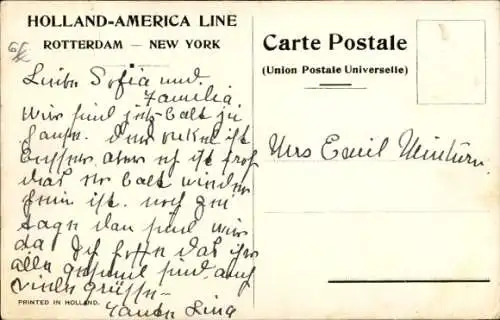 HOLLAND-AMERICA LINE
ROTTERDAM — NEW YORK
Carte Postale
(Union Postale Universelle)
Liebe Sofia und
Familia.
Wir sind jetz balt zu
hause. Der onkel ist
aber er ist froh
das er balt wieder
ist. noch zwei
tage dan sind wir
da. Ich hoffe das ihr
alle gesund sind, auf
viele grüsse
Tante Lina
Mrs Emil
PRINTED IN HOLLAND.